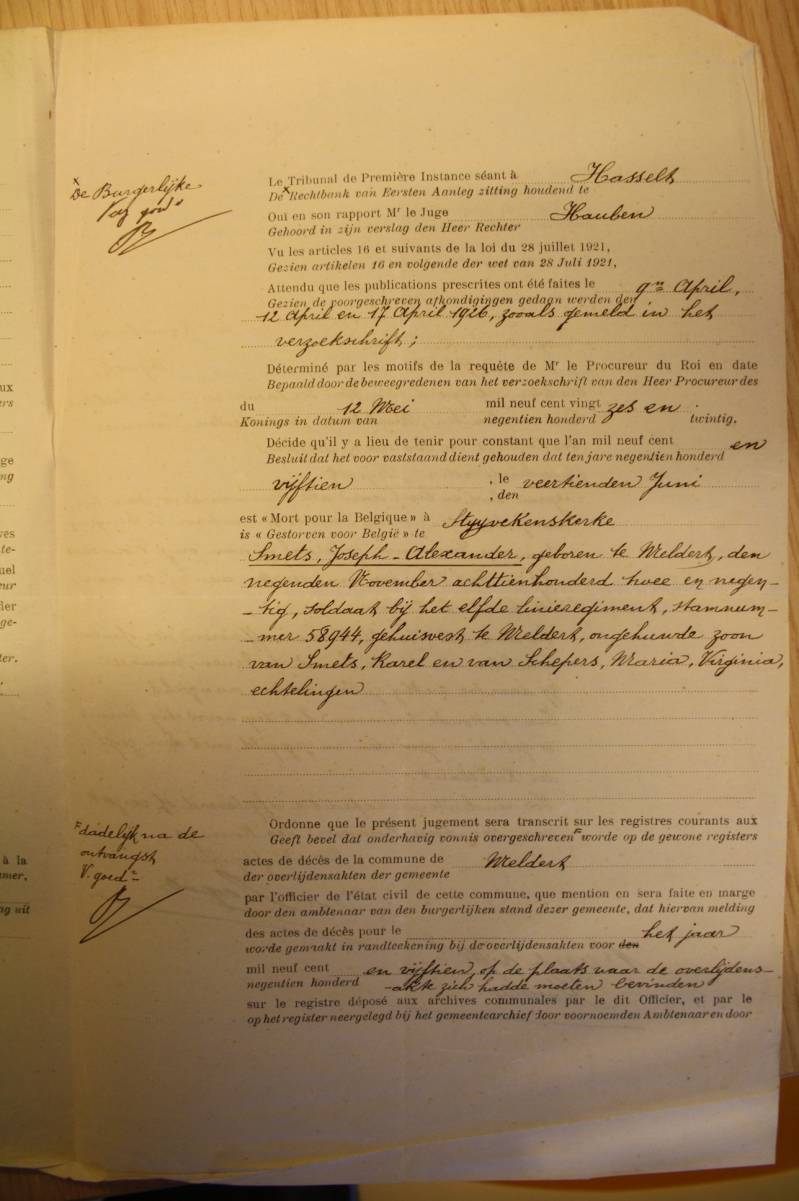 x
De Burgerlijke
V. goed
Le Tribunal de Première Instance séant à Hasselt
De x Rechtbank van Eersten Aanleg zitting houdend te
Oui en son rapport Mr le Juge Hauben
Gehoord in zijn verslag den Heer Rechter
Vu les articles 16 et suivants de la loi du 28 juillet 1921,
Gezien artikelen 16 en volgende der wet van 28 Juli 1921,
Attendu que les publications prescrites ont été faites le 9en April,
Gezien de voorgeschreven afkondigingen gedagn werden den
12 April en 17 April 1926, zooals gemeld in het
verzoekschrift;
Déterminé par les motifs de la requête de Mr le Procureur du Roi en date
Bepaald door de beweegredenen van het verzoekschrift van den Heer Procureur des
du 12 Mei mil neuf cent vingt zes en
Konings in datum van negentien honderd twintig.
Décide qu'il y a lieu de tenir pour constant que l'an mil neuf cent en
Besluit dat het voor vaststaand dient gehouden dat ten jare negentien honderd
vijftien , le veertienden Juni
, den
est « Mort pour la Belgique » à Stuyvekenskerke
is « Gestorven voor België » te
Smets, Joseph-Alexander, geboren te Meldert, den
negenden November achttienhonderd twee en negen-
-tig, soldaat bij het elfde linieregiment, stamnum-
-mer 58944, gehuisvest te Meldert, ongehuwde zoon
van Smets, Karel en van Schepers, Maria, Virginia,
echtelingen
F dadelijk na de
ontvangst
V. goed
Ordonne que le présent jugement sera transcrit sur les registres courants aux
Geeft bevel dat onderhavig vonnis overgeschreven F worde op de gewone registers
actes de décès de la commune de Meldert
der overlijdensakten der gemeente
par l'officier de l'état civil de cette commune, que mention en sera faite en marge
door den ambtenaar van den burgerlijken stand dezer gemeente, dat hiervan melding
des actes de décès pour le het jaar
worde gemaakt in randteekening bij de overlijdensakten voor den
mil neuf cent en vijftien, op de plaats waar de overlijdens-
negentien honderd -akte zich hadde moeten bevinden
sur le registre déposé aux archives communales par le dit Officier, et par le
op het register neergelegd bij het gemeentearchief door voornoemden Ambtenaar en door